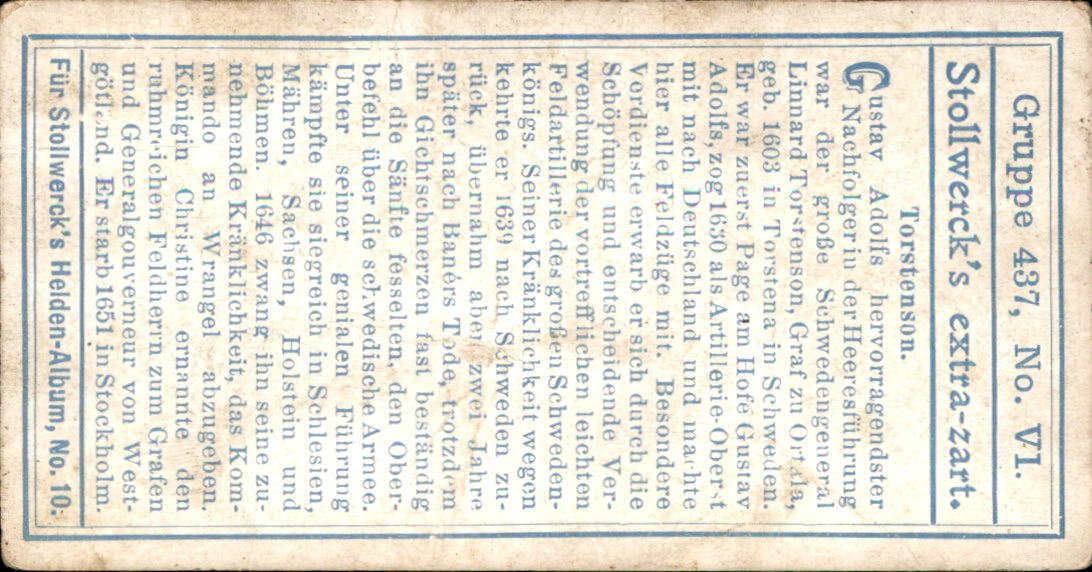 Gruppe 437, No. VI.
Stollwerck's extra-zart.
Torstenson.
Gustav Adolfs hervorragendster
Nachfolger in der Heeresführung
war der große Schwedengeneral
Linnard Torstenson, Graf zu Ortala,
geb. 1603 in Torstena in Schweden.
Er war zuerst Page am Hofe Gustav
Adolfs, zog 1630 als Artillerie-Oberst
mit nach Deutschland und machte
hier alle Feldzüge mit. Besondere
Verdienste erwarb er sich durch die
Schöpfung und entscheidende Ver-
wendung der vortrefflichen leichten
Feldartillerie des großen Schweden-
königs. Seiner Kränklichkeit wegen
kehrte er 1639 nach Schweden zu-
rück, übernahm aber zwei Jahre
später nach Banérs Tode, trotzdem
ihn Gichtschmerzen fast beständig
an die Sänfte fesselten, den Ober-
befehl über die schwedische Armee.
Unter seiner genialen Führung
kämpfte sie siegreich in Schlesien,
Mähren, Sachsen, Holstein und
Böhmen. 1646 zwang ihn seine zu-
nehmende Kränklichkeit, das Kom-
mando an Wrangel abzugeben.
Königin Christine ernannte den
ruhmreichen Feldherrn zum Grafen
und Generalgouverneur von West-
götland. Er starb 1651 in Stockholm.
Für Stollwerck's Helden-Album, No. 10.